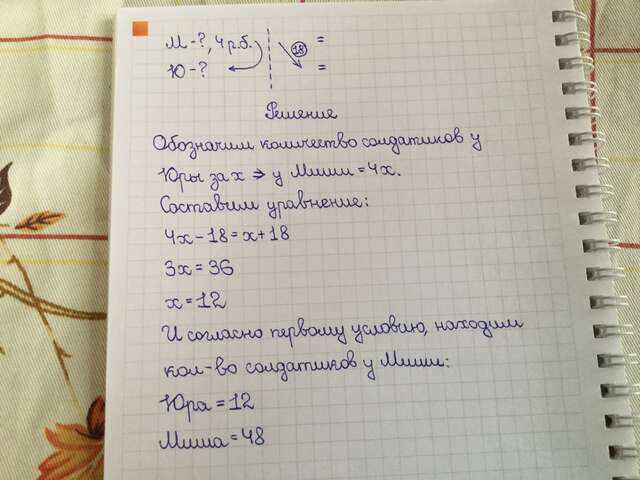 М-?, 4 р.б.
Ю-?
18
=
=
Решение
Обозначим количество солдатиков у
Юры за x ⇒ у Миши = 4x.
Составим уравнение:
4x-18=x+18
3x=36
x=12
И согласно первому условию, находим
кол-во солдатиков у Миши:
Юра = 12
Миша = 48